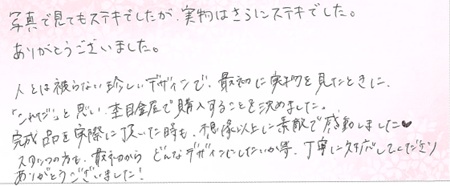 写真で見てもステキでしたが、実物はさらにステキでした。
ありがとうございました。
人とは被らない珍しいデザインで、最初に実物を見たときに、
「これだ」と思い、杢目金屋で購入することを決めました。
完成品を実際に頂いた時も、想像以上に素敵で感動しました♥
スタッフの方も、最初から どんなデザインにしたいか等、丁寧に対応してくださり
ありがとうございました!